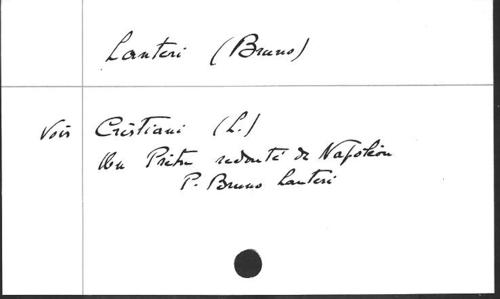 Lanteri (Bruno)
Voir Cristiani (L.)
Un Prêtre redouté de Napoléon
P. Bruno Lanteri